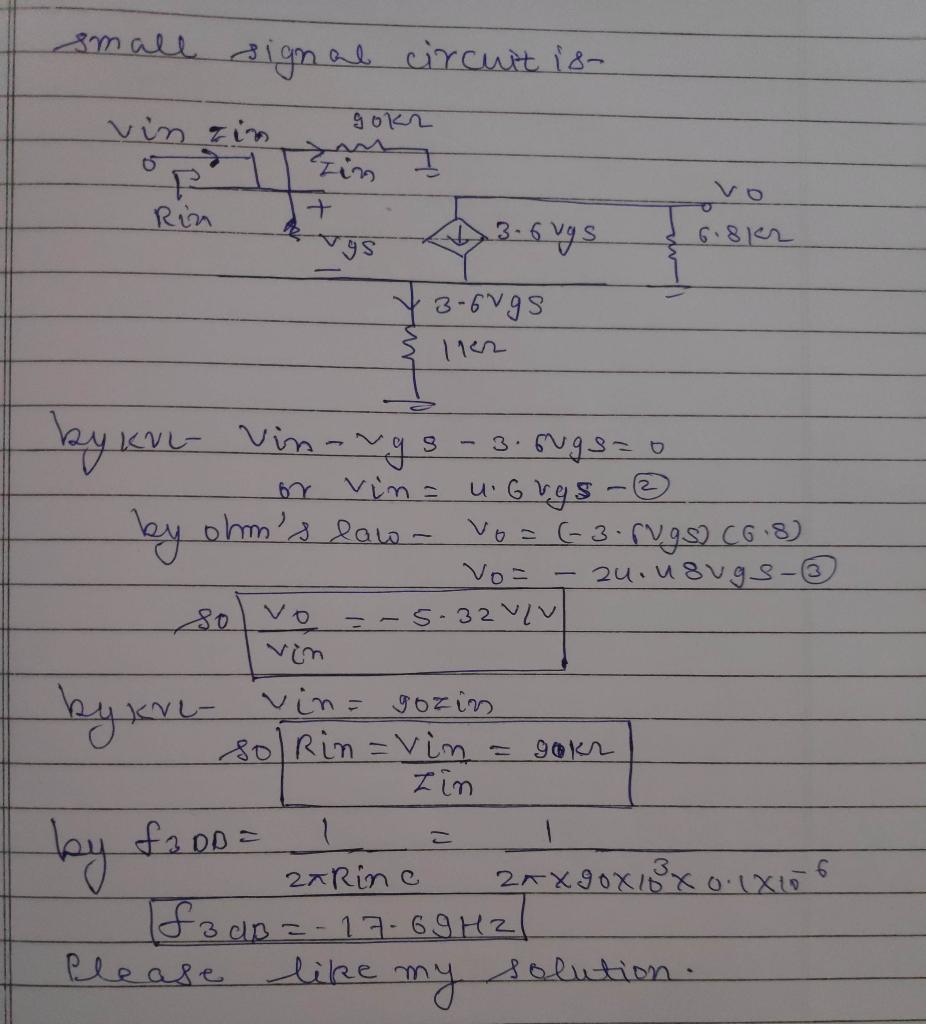 small signal circuit is-
Vin Iin 90kΩ
Iin
Rin
+
Vgs
-
3.6Vgs
Vo
6.8kΩ
3.6Vgs
1kΩ
by KVL- Vin - Vgs - 3.6Vgs = 0
or Vin = 4.6Vgs - ②
by ohm's law - Vo = (-3.6Vgs) (6.8)
Vo = - 24.48Vgs - ③
so Vo/Vin = - 5.32 V/V
by KVL- Vin = 90Iin
so Rin = Vin/Iin = 90kΩ
by f3DB = 1/2πRinC = 1/2π×90×10³×0.1×10⁻⁶
f3dB = - 17.69Hz
Please like my solution.